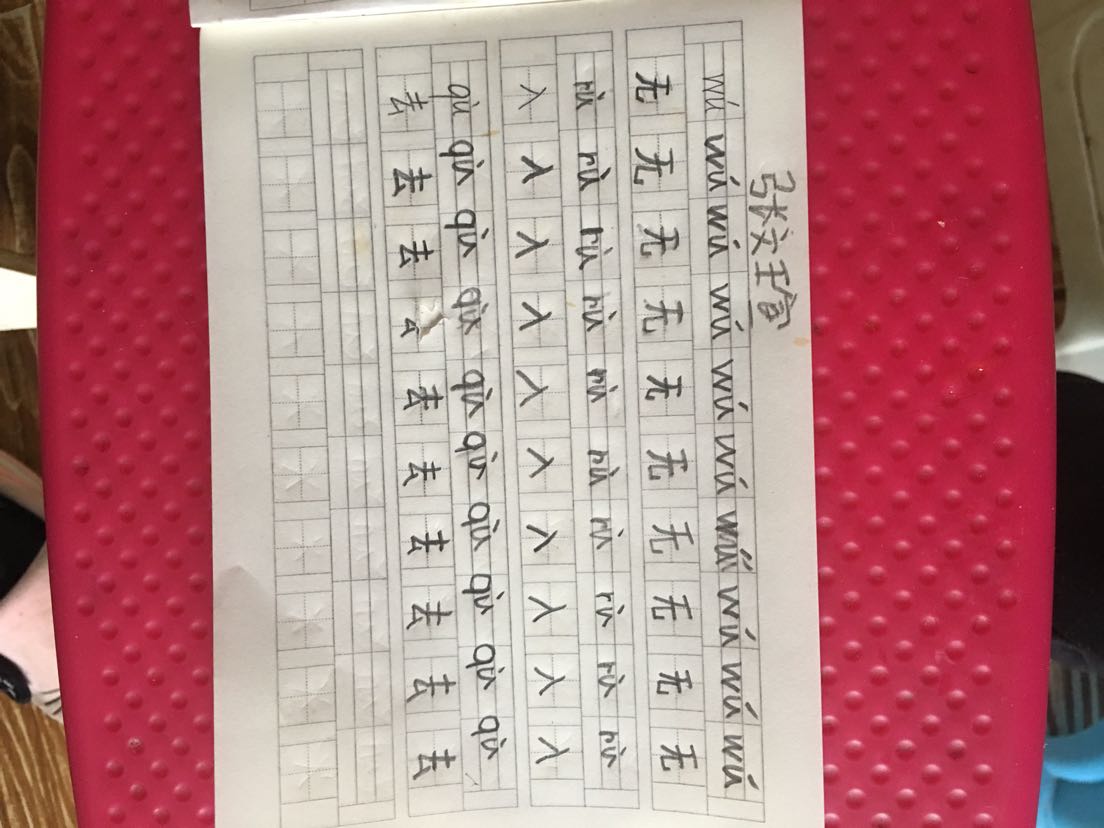 张文瑄
wú wú wú wú wú wú wú wú wú wú
无 无 无 无 无 无 无 无 无 无
rù rù rù rù rù rù rù rù rù rù
入 入 入 入 入 入 入 入 入 入
qù qù qù qù qù qù qù qù qù qù
去 去 去 去 去 去 去 去 去 去